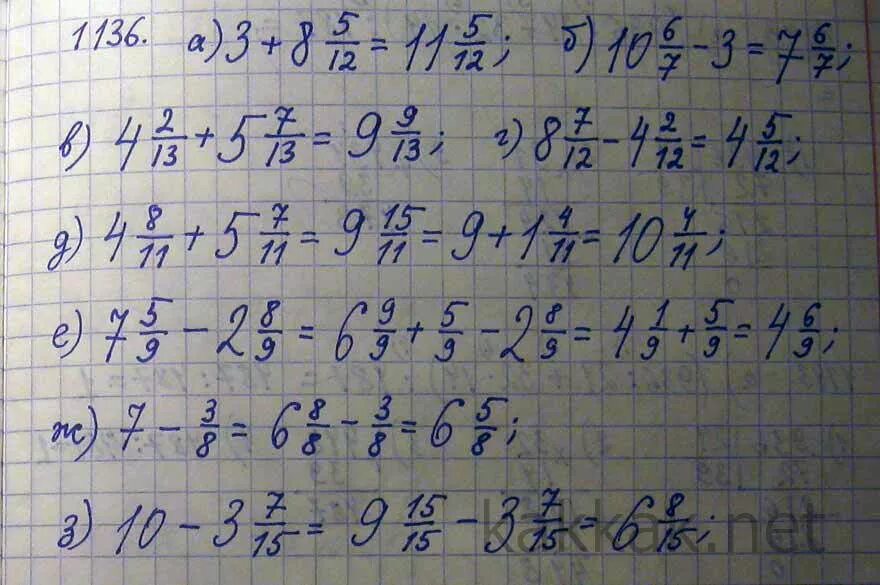 1136. а) 3 + 8 5/12 = 11 5/12; б) 10 6/7 - 3 = 7 6/7;
в) 4 2/13 + 5 7/13 = 9 9/13; г) 8 7/12 - 4 2/12 = 4 5/12;
д) 4 8/11 + 5 7/11 = 9 15/11 = 9 + 1 4/11 = 10 4/11;
е) 7 5/9 - 2 8/9 = 6 9/9 + 5/9 - 2 8/9 = 4 1/9 + 5/9 = 4 6/9;
ж) 7 - 3/8 = 6 8/8 - 3/8 = 6 5/8;
з) 10 - 3 7/15 = 9 15/15 - 3 7/15 = 6 8/15;
kakkak.net